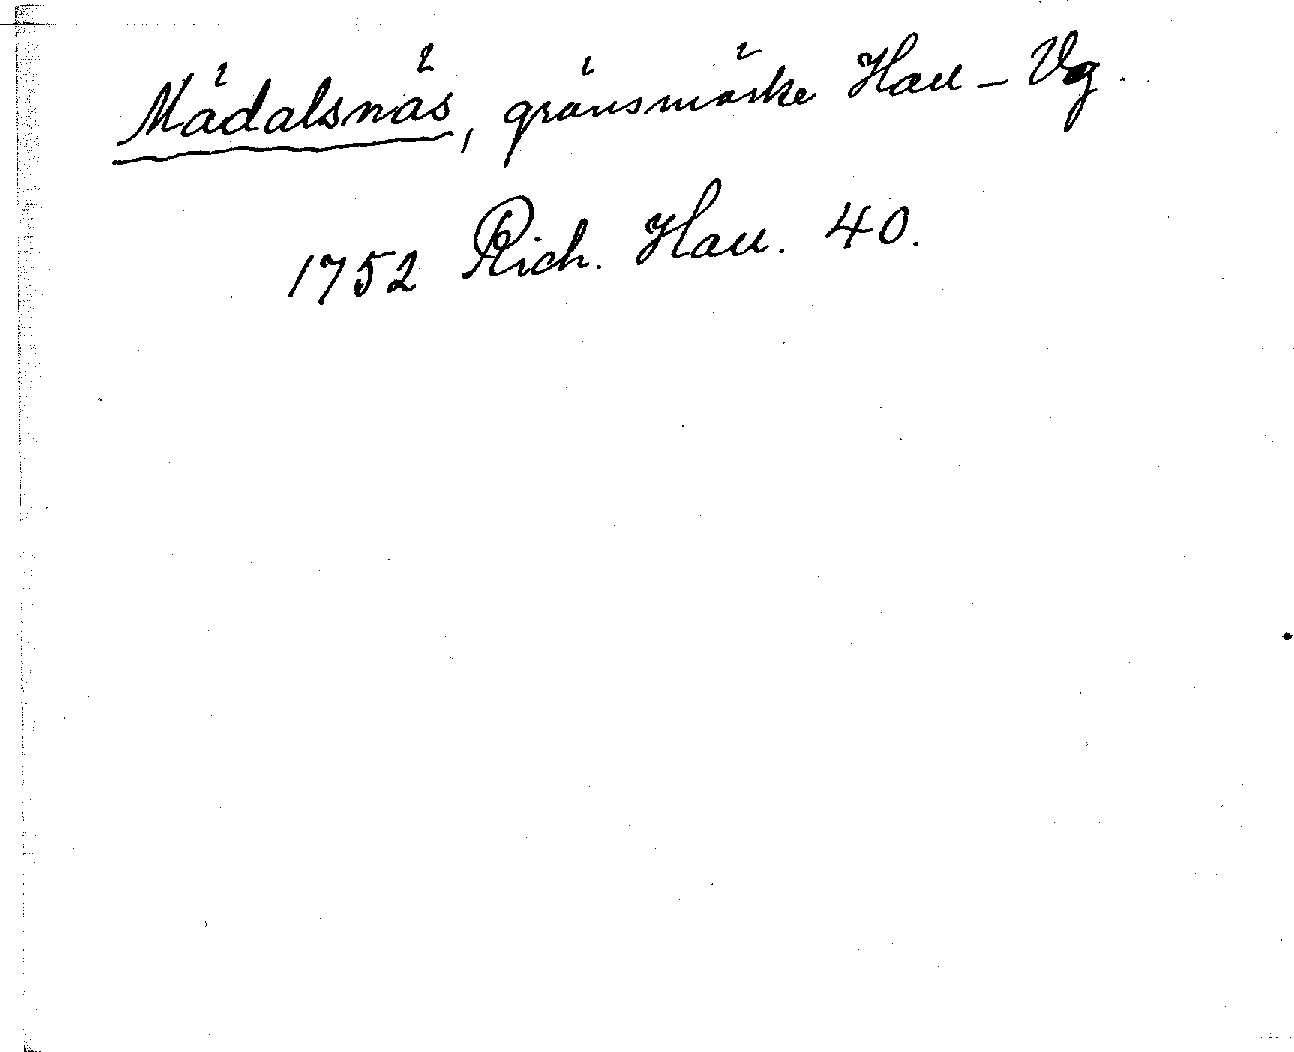 Mädalsnäs, gränsmärke Hall – Vg.
1752 Rich. Hall. 40.